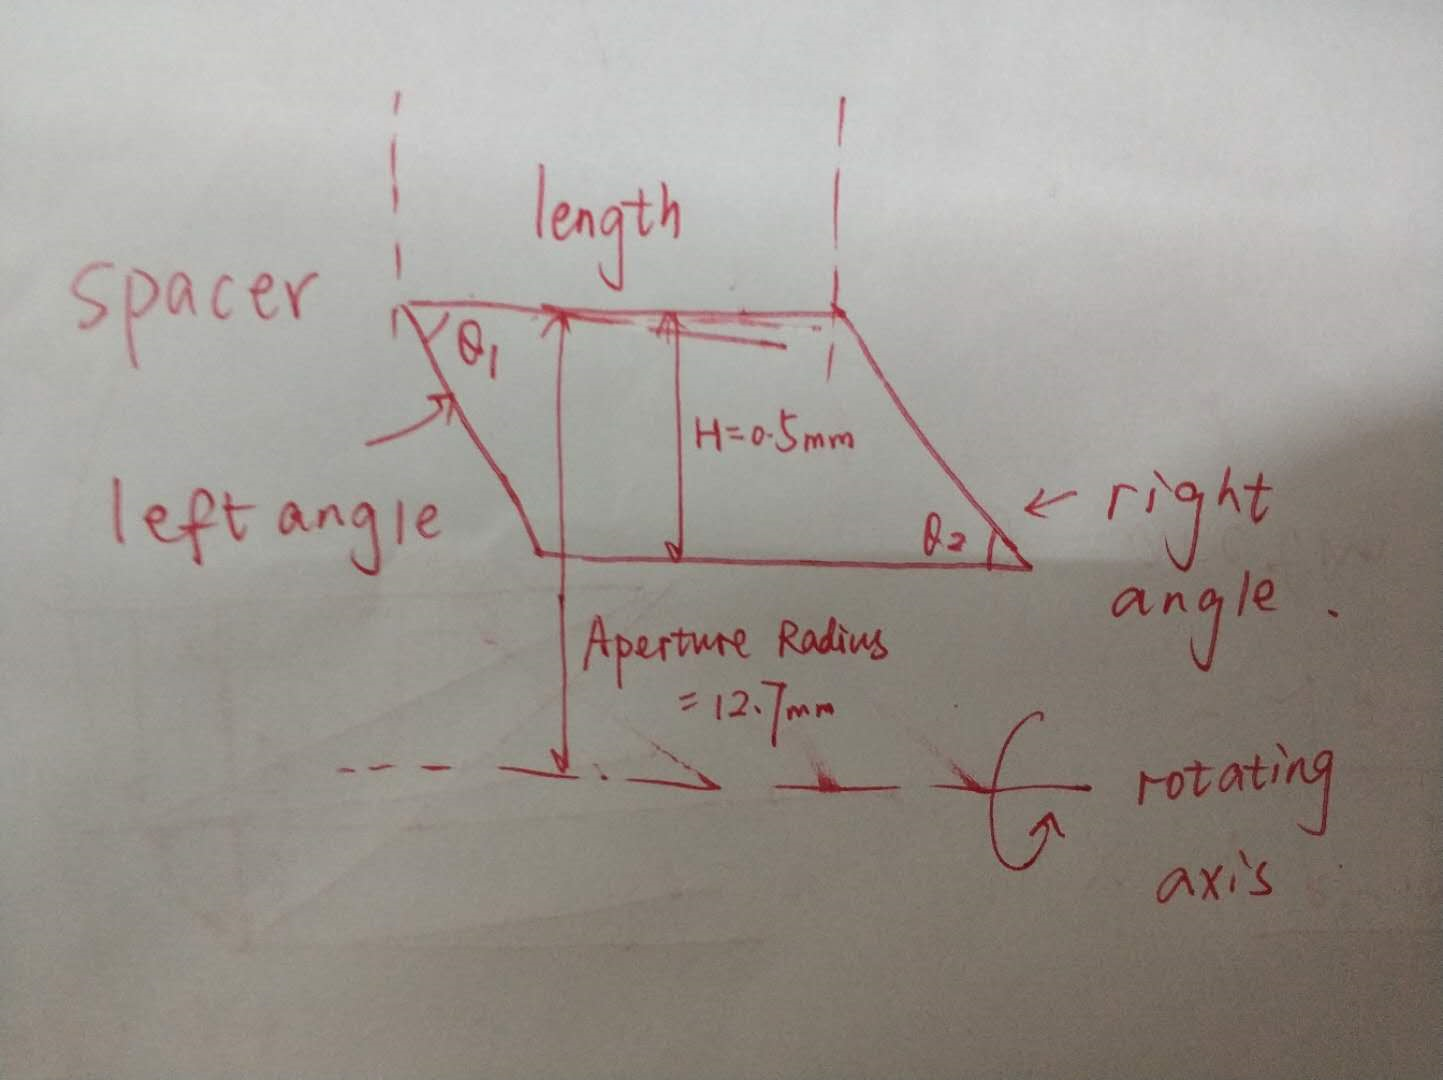 length
spacer
θ1
H=0.5mm
left angle
θ2
right
angle.
Aperture Radius
=12.7mm
rotating
axis